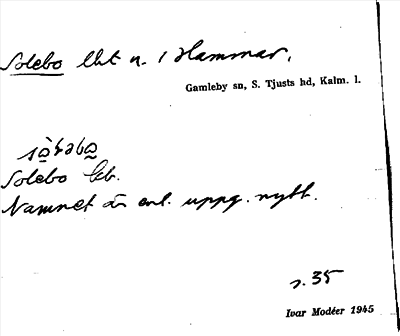 Solebo lht u. 1 Hammar.
Gamleby sn, S. Tjusts hd, Kalm. l.
Solebo
Namnet är enl. uppg. nytt.
s. 35
Ivar Modéer 1945